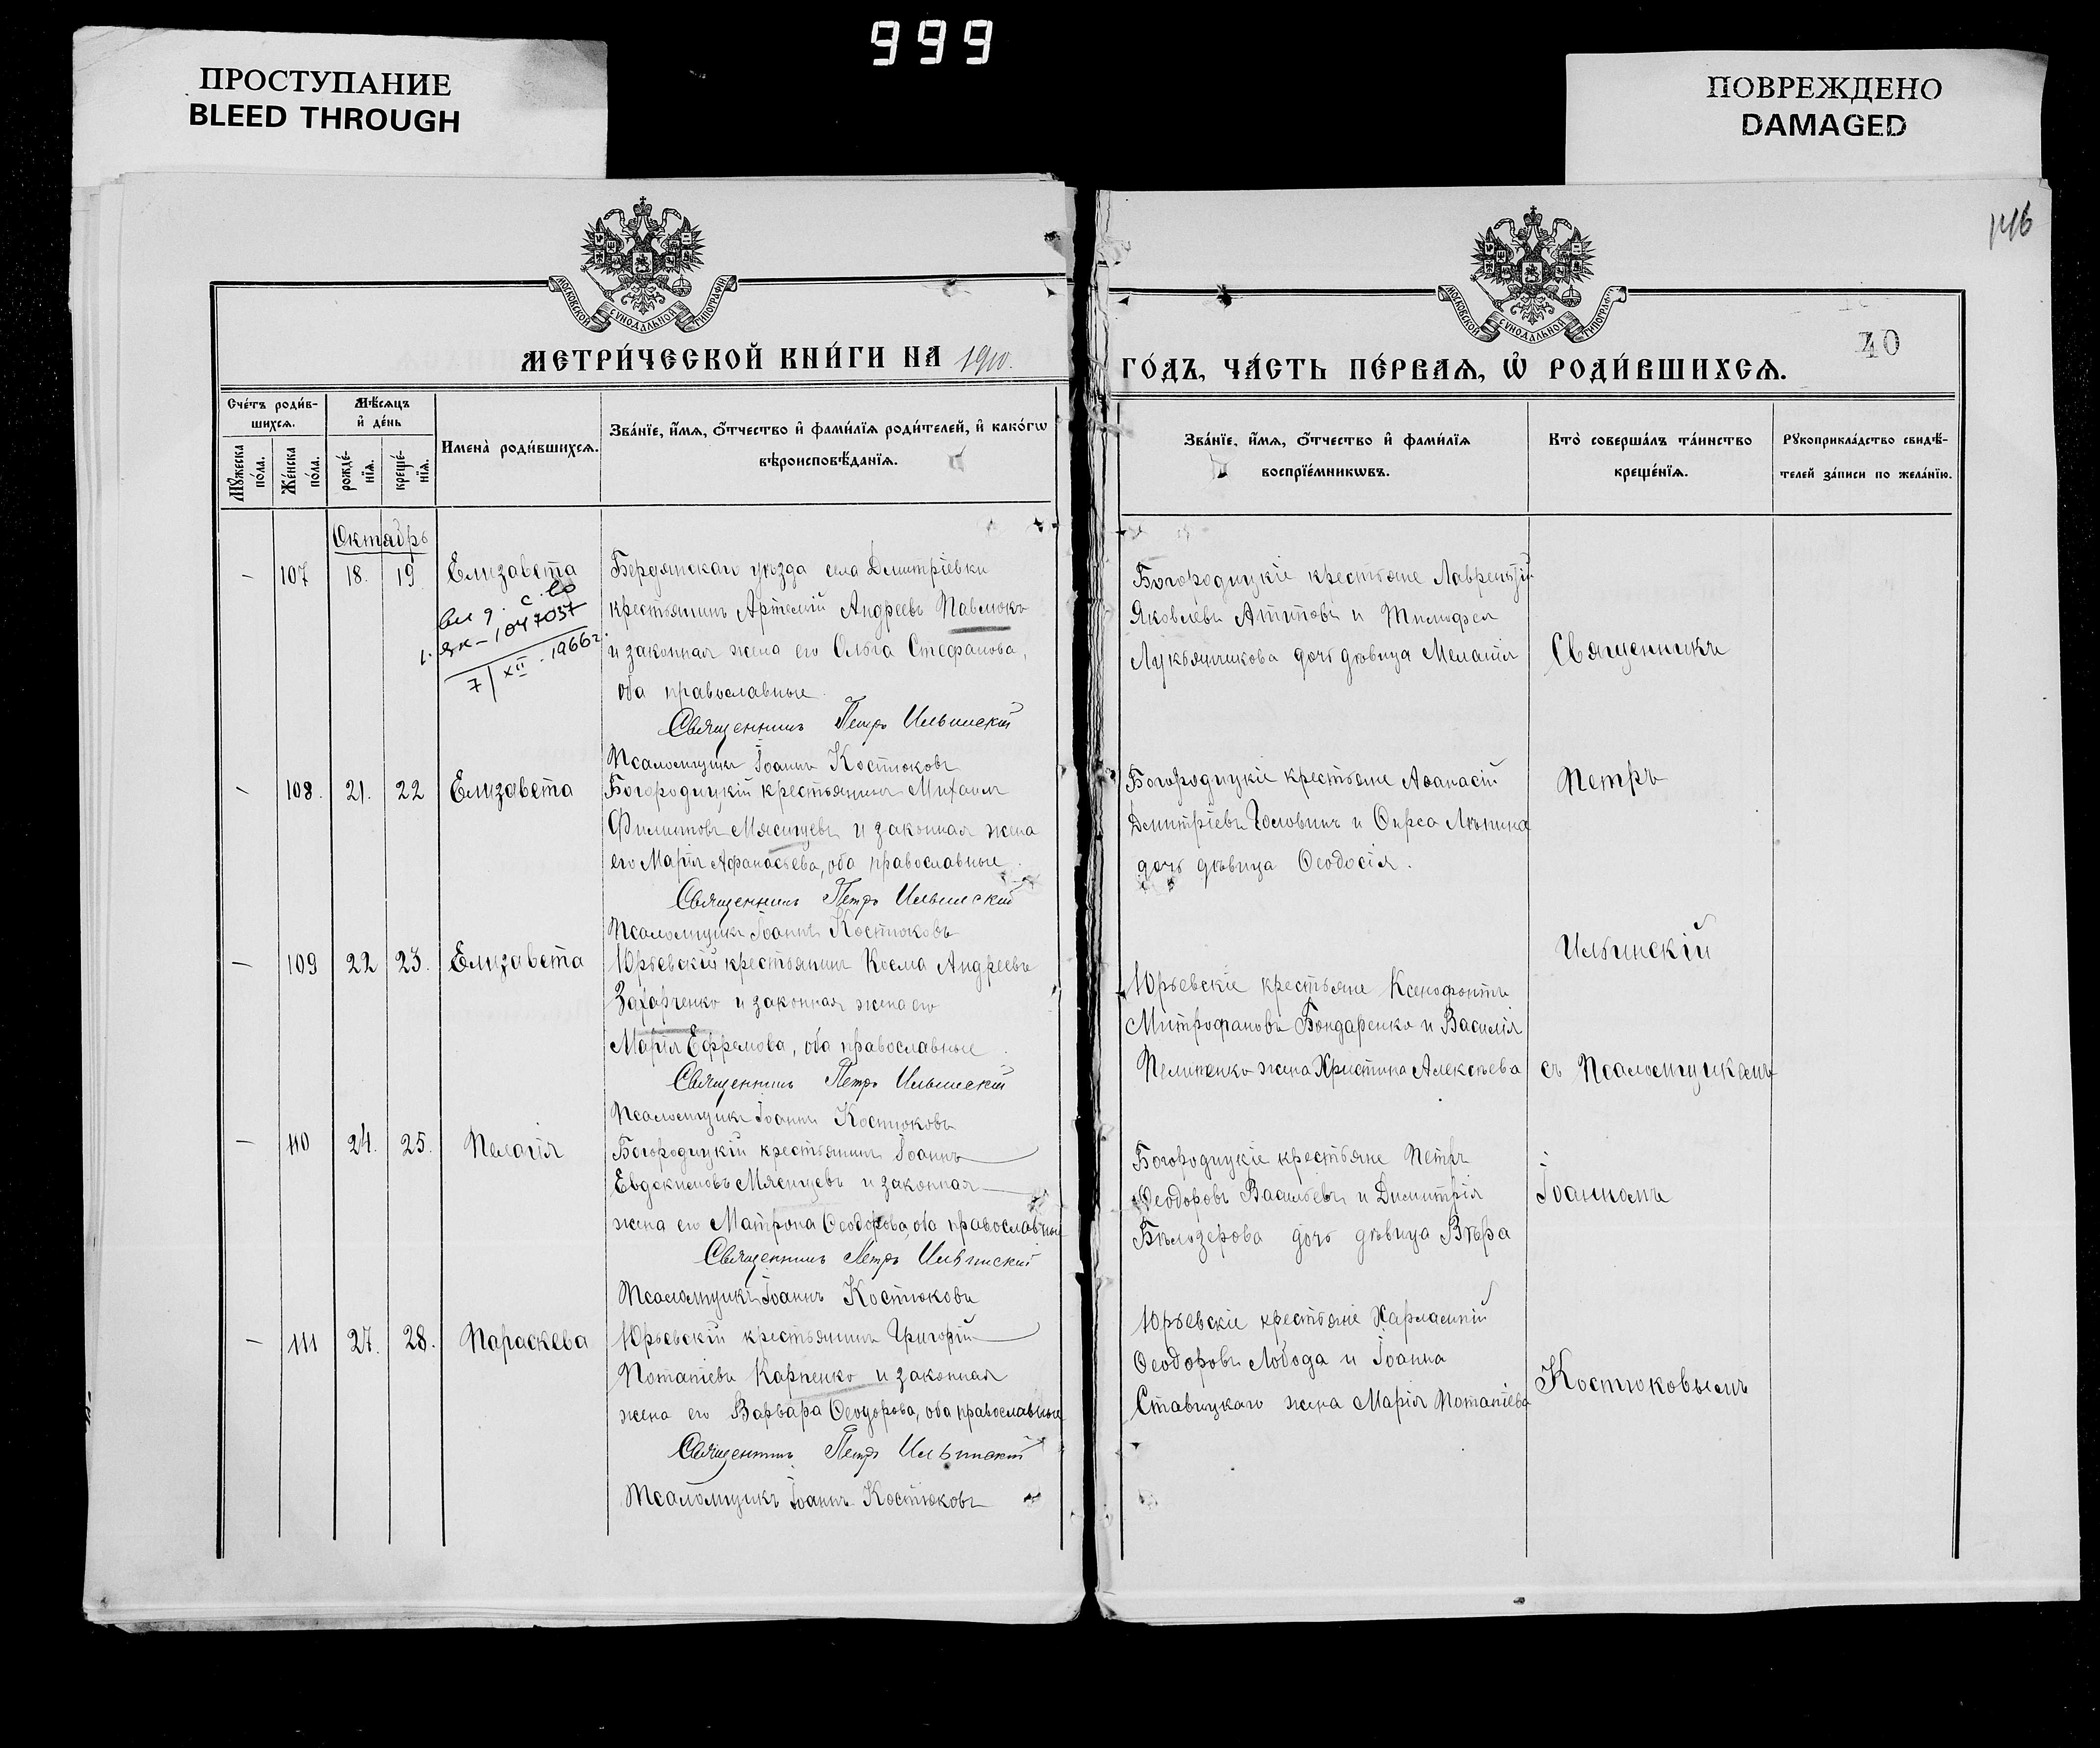 999
ПРОСТУПАНИЕ
BLEED THROUGH
ПОВРЕЖДЕНО
DAMAGED
146
40
МОСКОВСКОЙ СѴНОДАЛЬНОЙ ТИПОГРАФІИ
МОСКОВСКОЙ СѴНОДАЛЬНОЙ ТИПОГРАФІИ
МЕТРИ́ЧЕСКОЙ КНИ́ГИ НА 1910.
ГО́ДЪ, ЧА́СТЬ ПЕ́РВАѦ, Ѡ҆ РОДИ́ВШИХСѦ.
Сче́тъ роди́в-
шихсѧ.
Мѣ́сѧцъ
и҆ де́нь
Мꙋ́жеска по́ла.
Же́нска по́ла.
рожде́-нїѧ.
креще́-нїѧ.
Имена̀ роди́вшихсѧ.
Зва́нїе, и҆́мѧ, ѻ҆́тчество и҆ фами́лїѧ роди́телей, и҆ како́гѡ
вѣроисповѣ́данїѧ.
Зва́нїе, и҆́мѧ, ѻ҆́тчество и҆ фами́лїѧ
воспрїе́мникѡвъ.
Кто̀ соверша́лъ та́инство
креще́нїѧ.
Рꙋкоприкла́дство свидѣ́-
телей за́писи по жела́нїю.
Октябрь
— 107 18. 19 Елизавета
1047037
7/XII. 1966г.
Бердянскаго уѣзда села Димитріевки
крестьянинъ Артемій Андреевъ Павлюкъ
и законная жена его Ольга Стефанова,
оба православные.
Священникъ Петръ Ильинскій
Псаломщикъ Іоаннъ Костюковъ
Богородицкіе крестьяне Лаврентій
Яковлевъ Антиповъ и Тимофея
Лукьянчикова дочь дѣвица Меланія
Священникъ
— 108. 21. 22 Елизавета
Богородицкій крестьянинъ Михаилъ
Филиповъ Мясищевъ и законная жена
его Марія Афанасьева, оба православные.
Священникъ Петръ Ильинскій
Псаломщикъ Іоаннъ Костюковъ
Богородицкіе крестьяне Аѳанасій
Димитріевъ Головинъ и Ѳирса
дочь дѣвица Ѳеодосія.
Петръ
— 109 22 23. Елизавета
Юрьевскій крестьянинъ Косма Андреевъ
Захарченко и законная жена его
Марія Ефремова, оба православные.
Священникъ Петръ Ильинскій
Псаломщикъ Іоаннъ Костюковъ
Юрьевскіе крестьяне Ксенофонтъ
Митрофановъ Бондаренко и Василія
Пелипенко жена Христина Алексѣева
Ильинскій
съ Псаломщикомъ
— 110 24. 25. Пелагія
Богородицкій крестьянинъ Іоаннъ
Евдокимовъ Мясищевъ и законная
жена его Матрона Ѳеодорова, оба православные
Священникъ Петръ Ильинскій
Псаломщикъ Іоаннъ Костюковъ
Богородицкіе крестьяне Петръ
Ѳеодоровъ Васильевъ и Димитрія
Бѣлозерова дочь дѣвица Вѣра
Іоанномъ
— 111 27. 28. Параскева
Юрьевскій крестьянинъ Григорій
Потапіевъ Карпенко и законная
жена его Варвара Ѳеодорова, оба православные
Священникъ Петръ Ильинскій
Псаломщикъ Іоаннъ Костюковъ
Юрьевскіе крестьяне Харлампій
Ѳеодоровъ Лобода и Іоанна
Ставицкаго жена Марія Потапіева
Костюковымъ